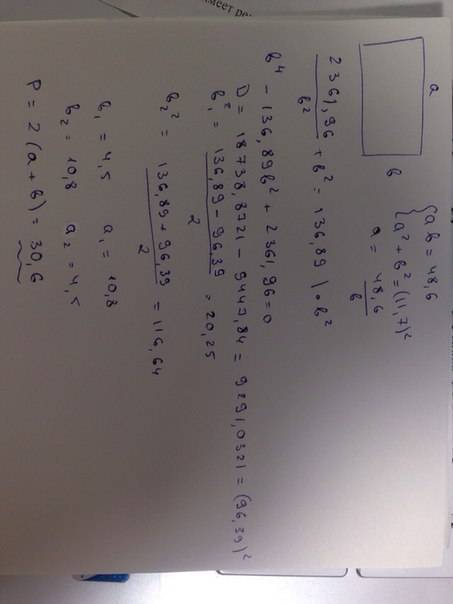 a
b
{ab = 48,6
a² + b² = (11,7)²
a = 48,6 / b
2361,96 / b² + b² = 136,89 | • b²
b⁴ - 136,89b² + 2361,96 = 0
D = 18738,8721 - 9447,84 = 9291,0321 = (96,39)²
b₁² = (136,89 - 96,39) / 2 = 20,25
b₂² = (136,89 + 96,39) / 2 = 116,64
b₁ = 4,5 a₁ = 10,8
b₂ = 10,8 a₂ = 4,5
P = 2 (a + b) = 30,6